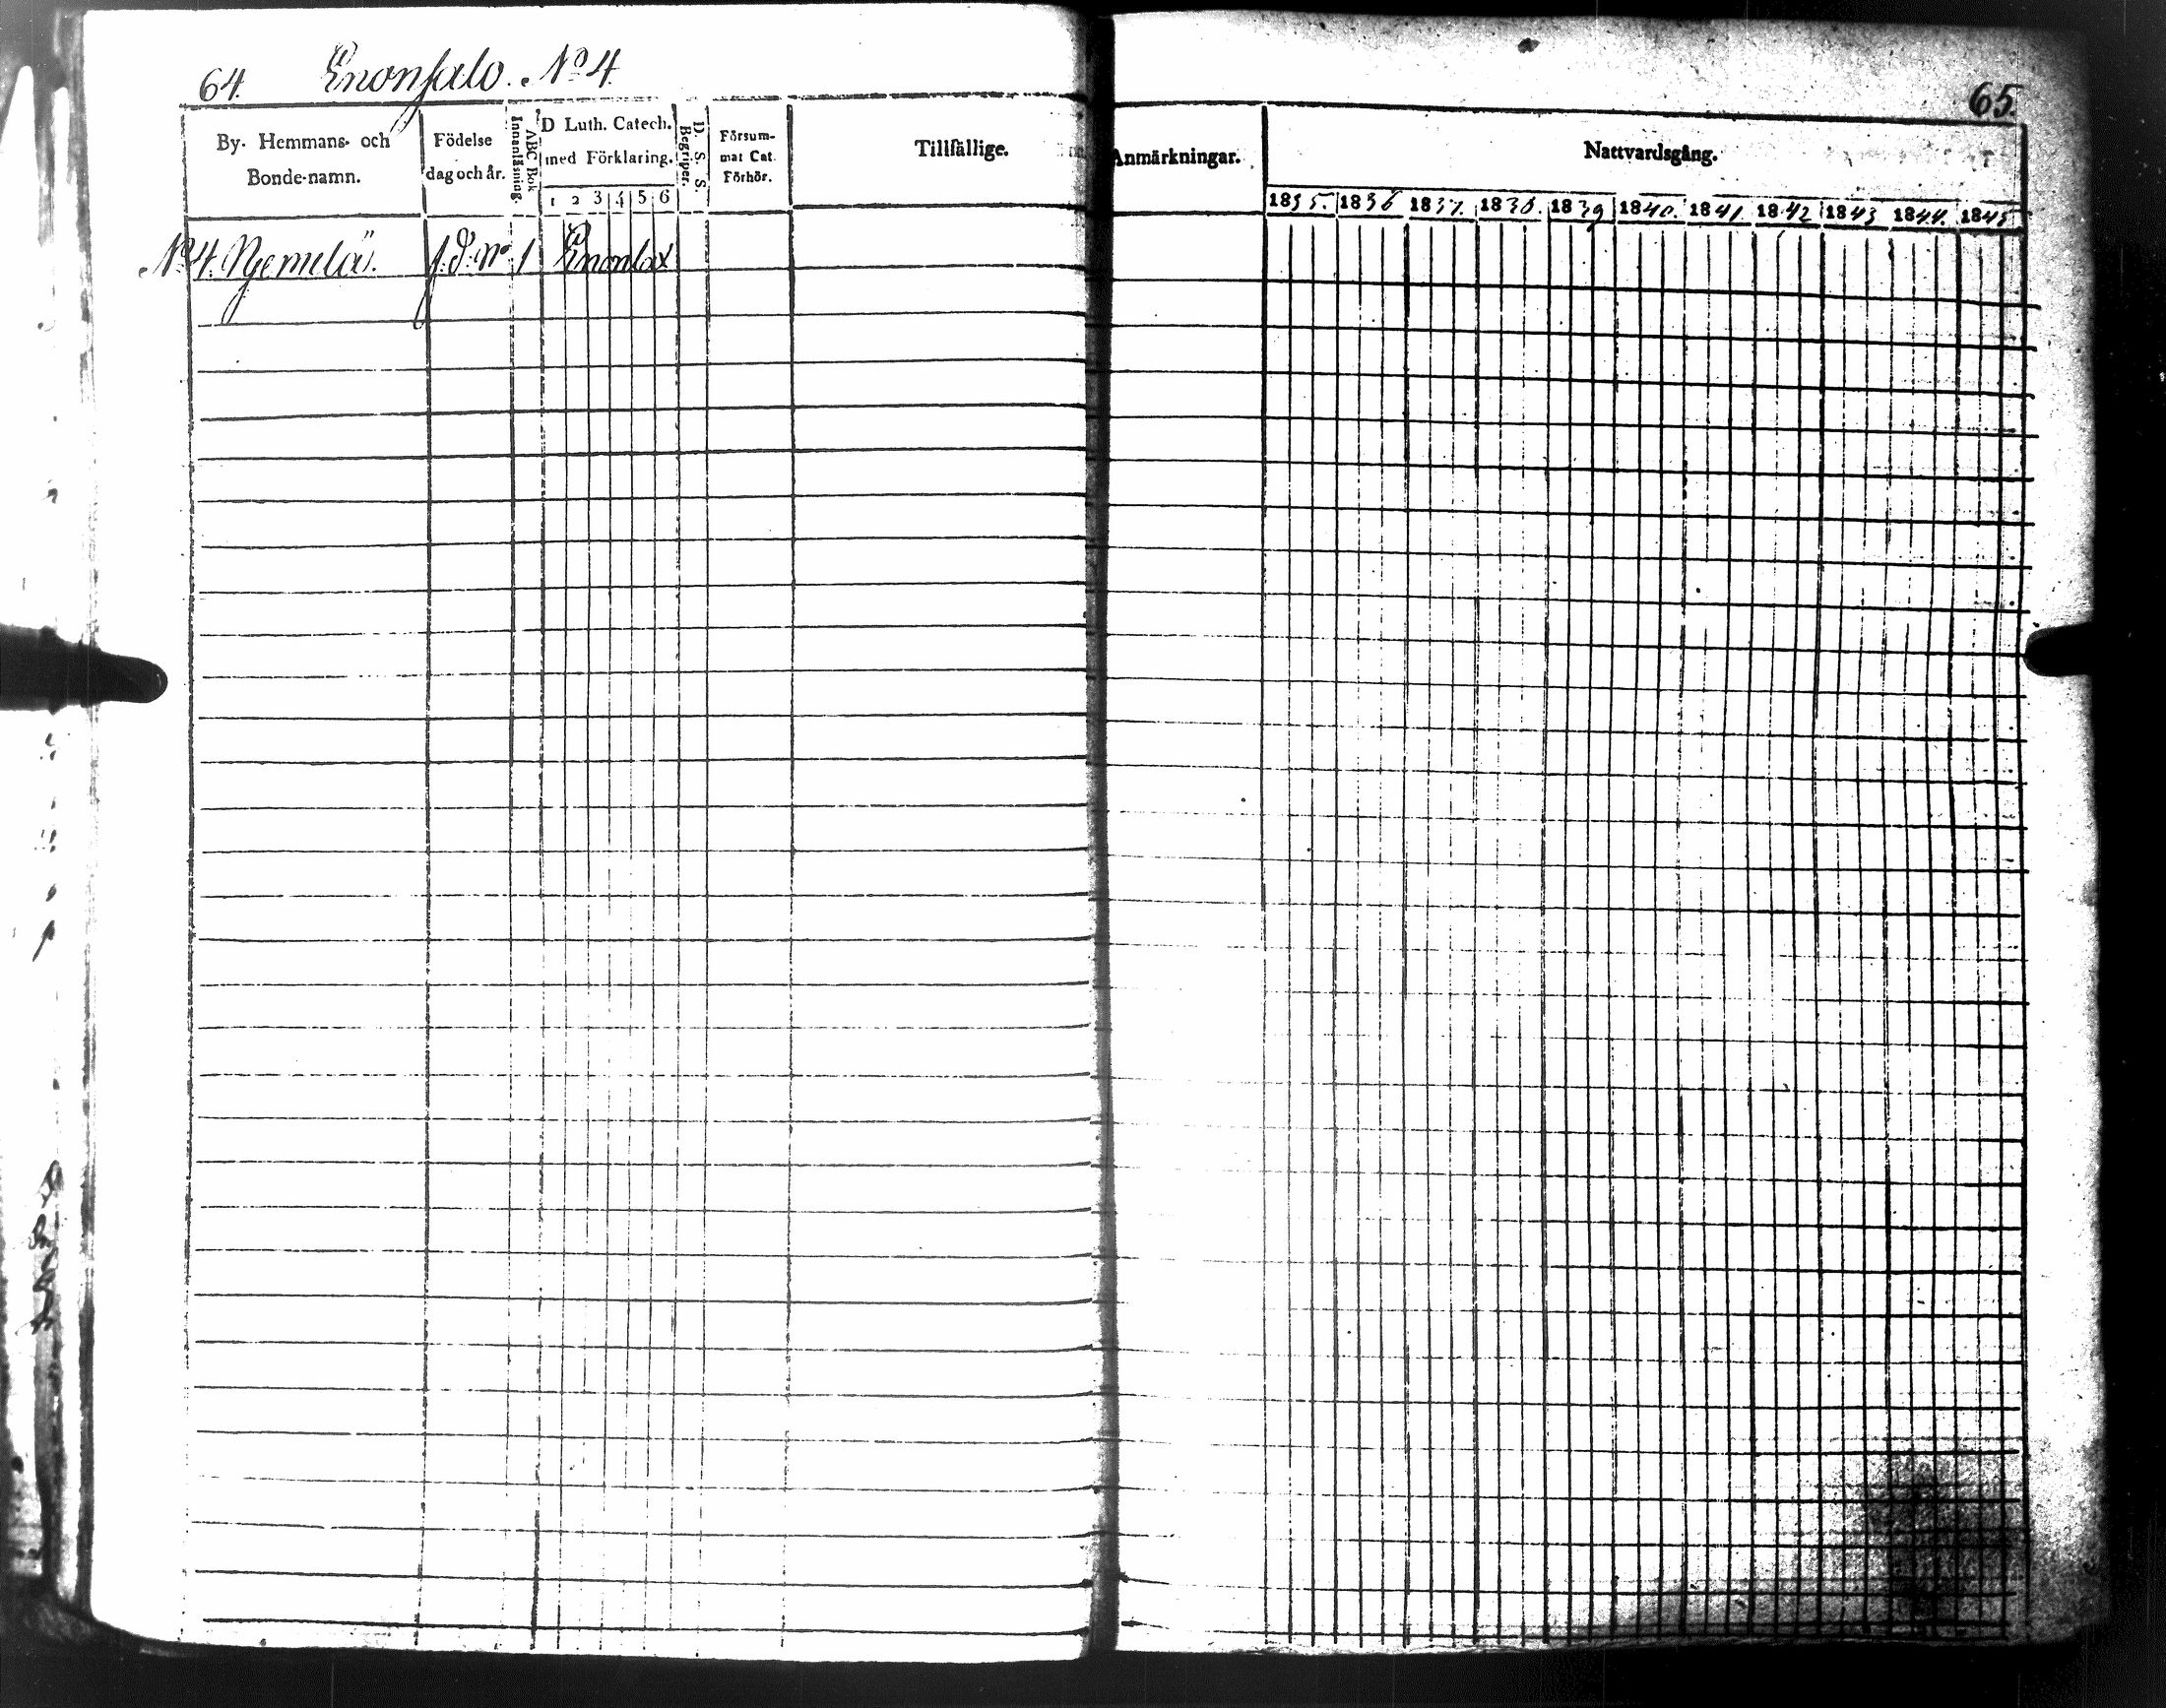 64. Enonsalo. No 4.
65.
By. Hemmans- och Bonde-namn.
Födelse dag och år.
Innanläsning.
ABC Bok
D Luth. Catech. med Förklaring.
1 2 3 4 5 6
D. S. S. Begriper.
Försum- mat Cat. Förhör.
Tillfällige.
Anmärkningar.
Nattvardsgång.
1835. 1836 1837. 1838. 1839 1840. 1841. 1842 1843 1844. 1845
No 4. Njemelä. No 1 Enonlax